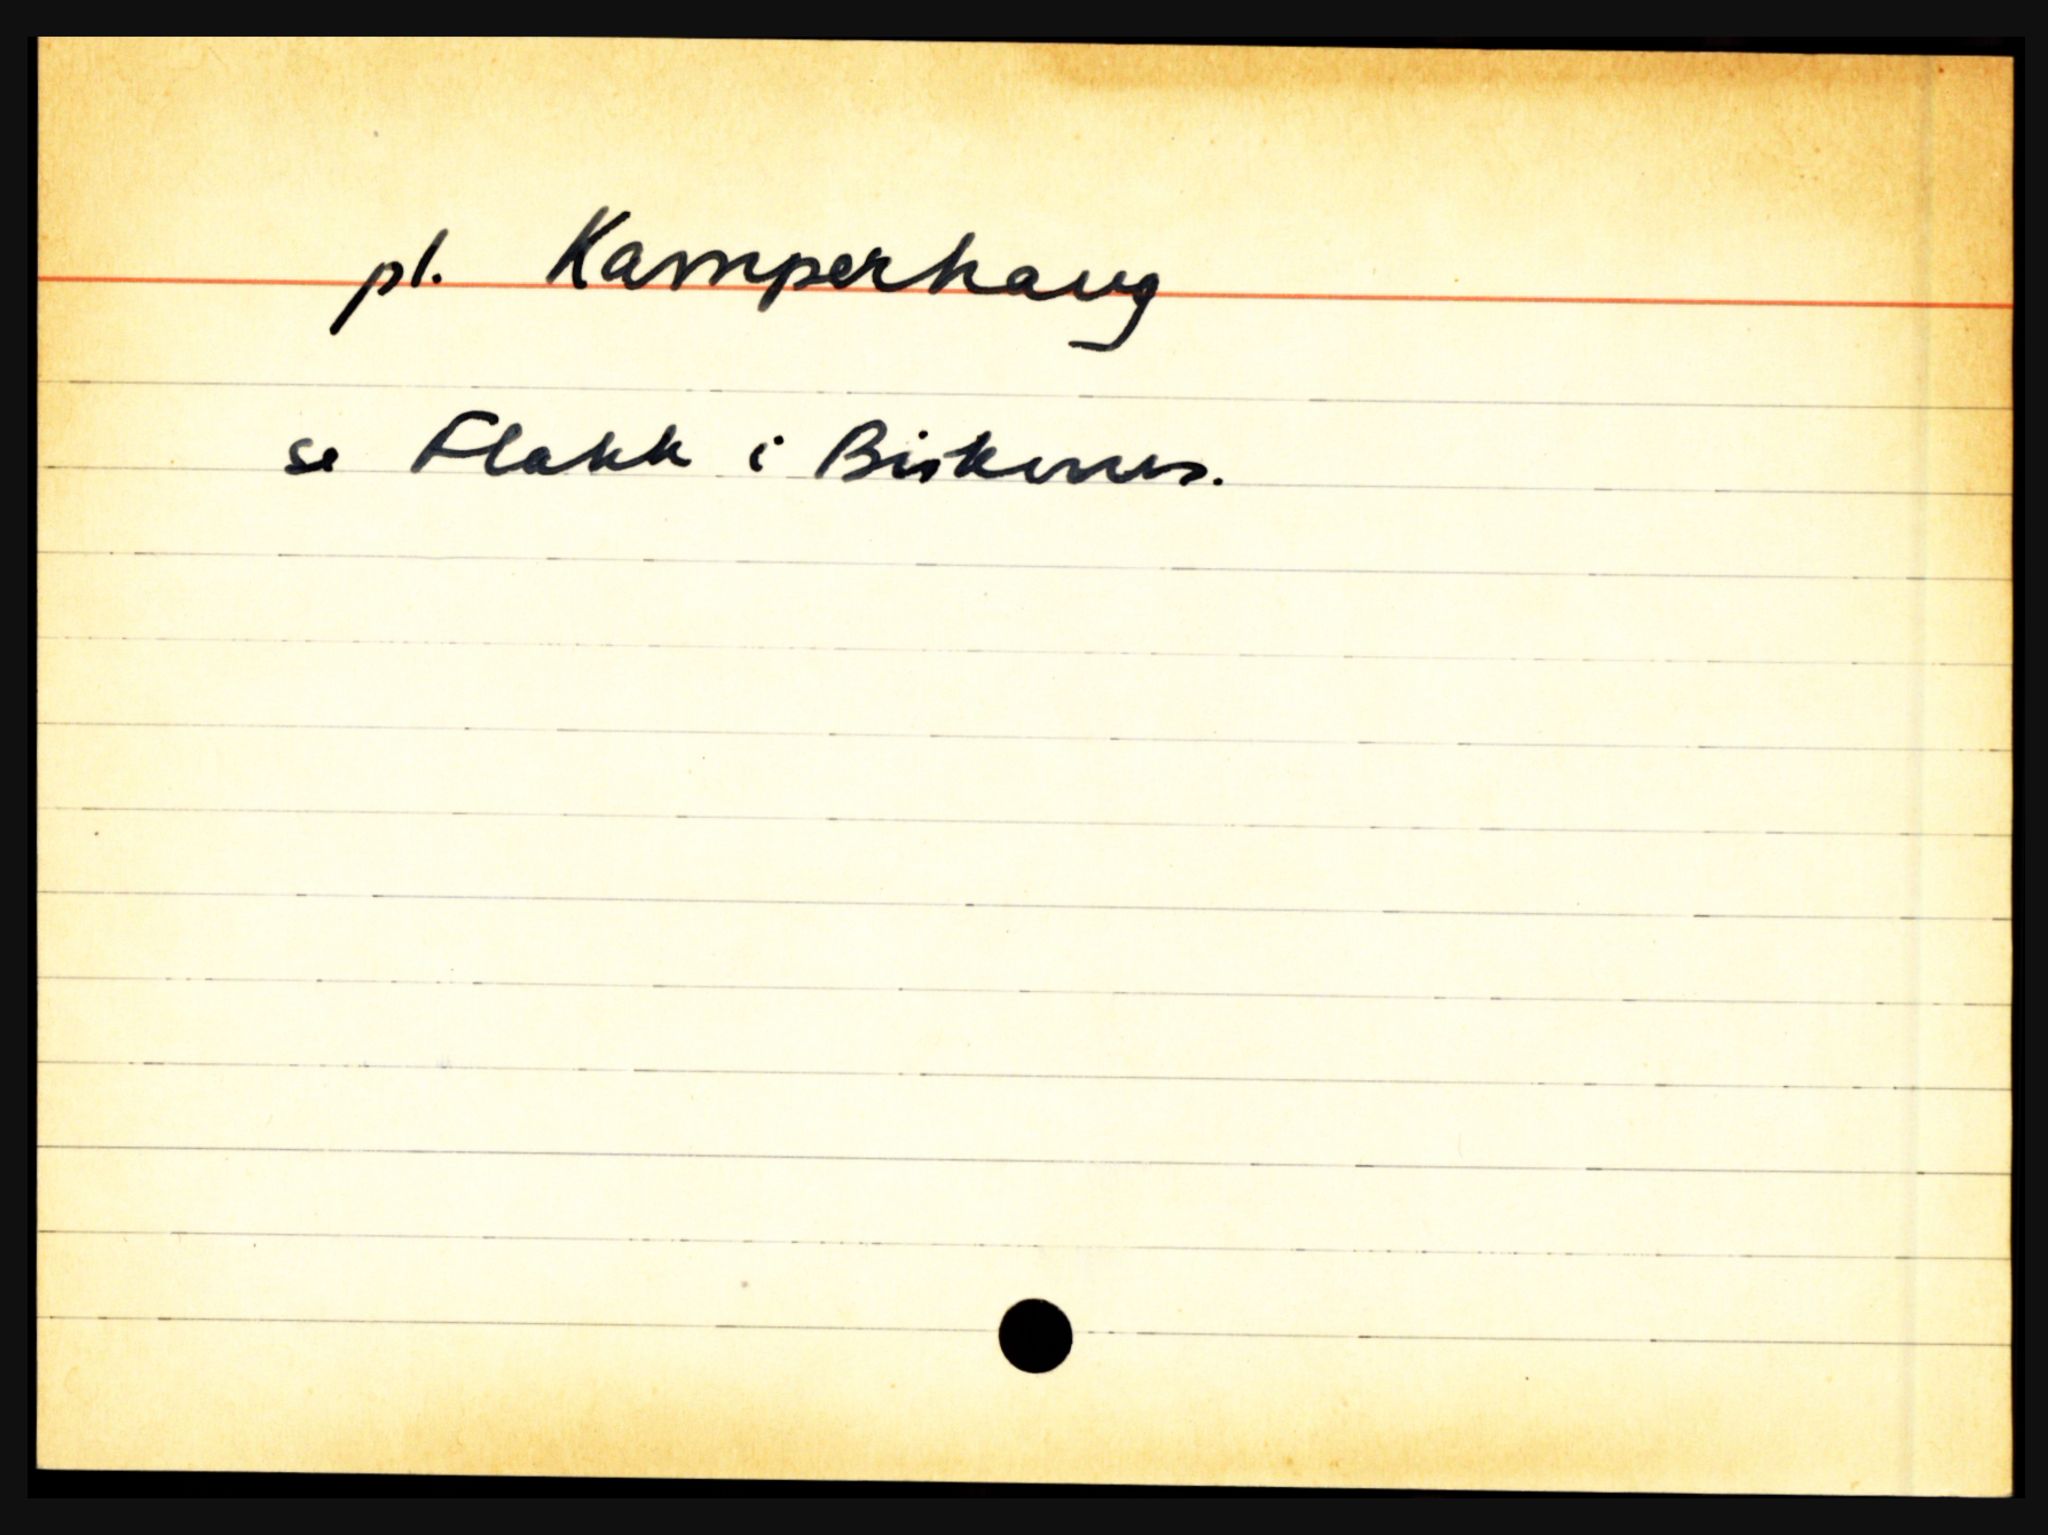 pl. Kamperhaug
se Flakk i Biskenes.